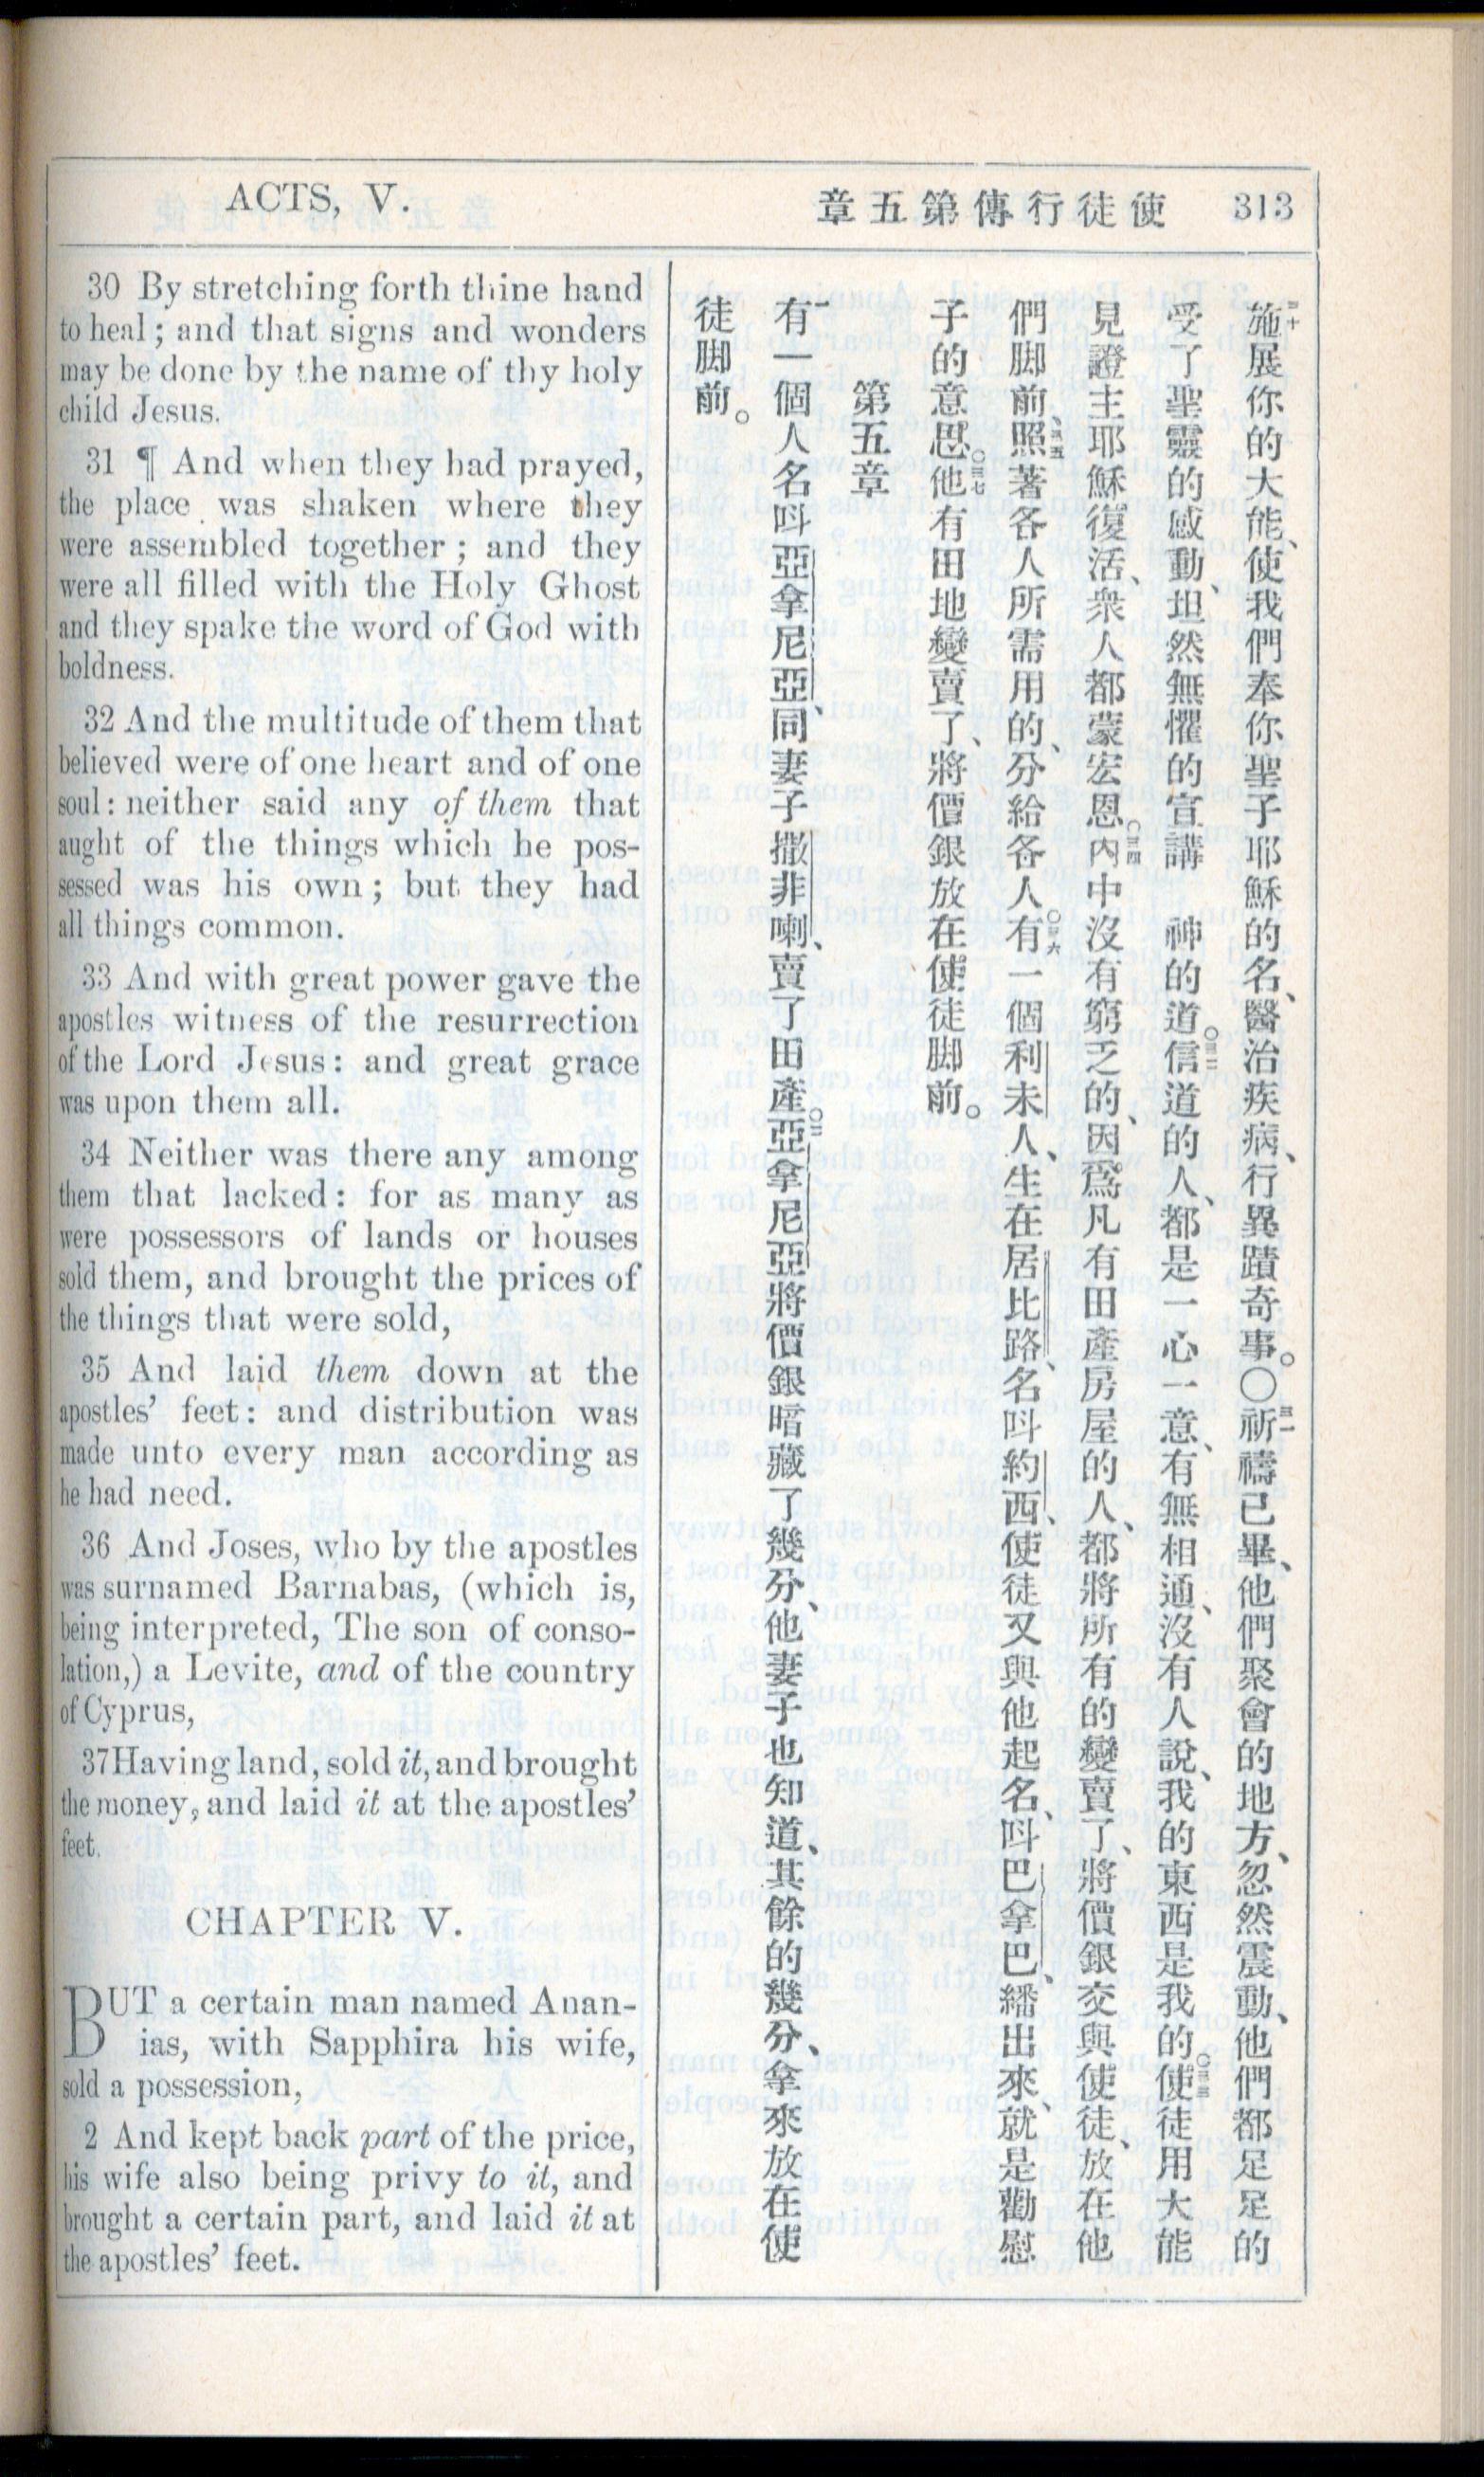 ACTS, V.
章五第傳行徒使 313
30 By stretching forth thine hand
to heal; and that signs and wonders
may be done by the name of thy holy
child Jesus.
31 ¶ And when they had prayed,
the place was shaken where they
were assembled together; and they
were all filled with the Holy Ghost
and they spake the word of God with
boldness.
32 And the multitude of them that
believed were of one heart and of one
soul: neither said any of them that
aught of the things which he pos-
sessed was his own; but they had
all things common.
33 And with great power gave the
apostles witness of the resurrection
of the Lord Jesus: and great grace
was upon them all.
34 Neither was there any among
them that lacked: for as many as
were possessors of lands or houses
sold them, and brought the prices of
the things that were sold,
35 And laid them down at the
apostles' feet: and distribution was
made unto every man according as
he had need.
36 And Joses, who by the apostles
was surnamed Barnabas, (which is,
being interpreted, The son of conso-
lation,) a Levite, and of the country
of Cyprus,
37 Having land, sold it, and brought
the money, and laid it at the apostles'
feet.
CHAPTER V.
BUT a certain man named Anan-
ias, with Sapphira his wife,
sold a possession,
2 And kept back part of the price,
his wife also being privy to it, and
brought a certain part, and laid it at
the apostles' feet.
三十施展你的大能、使我們奉你聖子耶穌的名、醫治疾病、行異蹟奇事。〇三一祈禱已畢、他們聚會的地方、忽然震動、他們都足足的
受了聖靈的感動、坦然無懼的宣講 神的道。〇三二信道的人、都是一心一意、有無相通、沒有人說、我的東西是我的〇三三使徒用大能
見證主耶穌復活、衆人都蒙宏恩〇三四內中沒有窮乏的、因爲凡有田產房屋的人、都將所有的變賣了、將價銀交與使徒、放在他
們脚前、三五照著各人所需用的、分給各人〇三六有一個利未人、生在居比路、名呌約西、使徒又與他起名、呌巴拿巴、繙出來、就是勸慰
子的意思〇三七他有田地變賣了、將價銀放在使徒脚前。
第五章
一有一個人名呌亞拿尼亞、同妻子撒非喇、賣了田產〇二亞拿尼亞將價銀暗藏了幾分、他妻子也知道、其餘的幾分、拿來放在使
徒脚前。